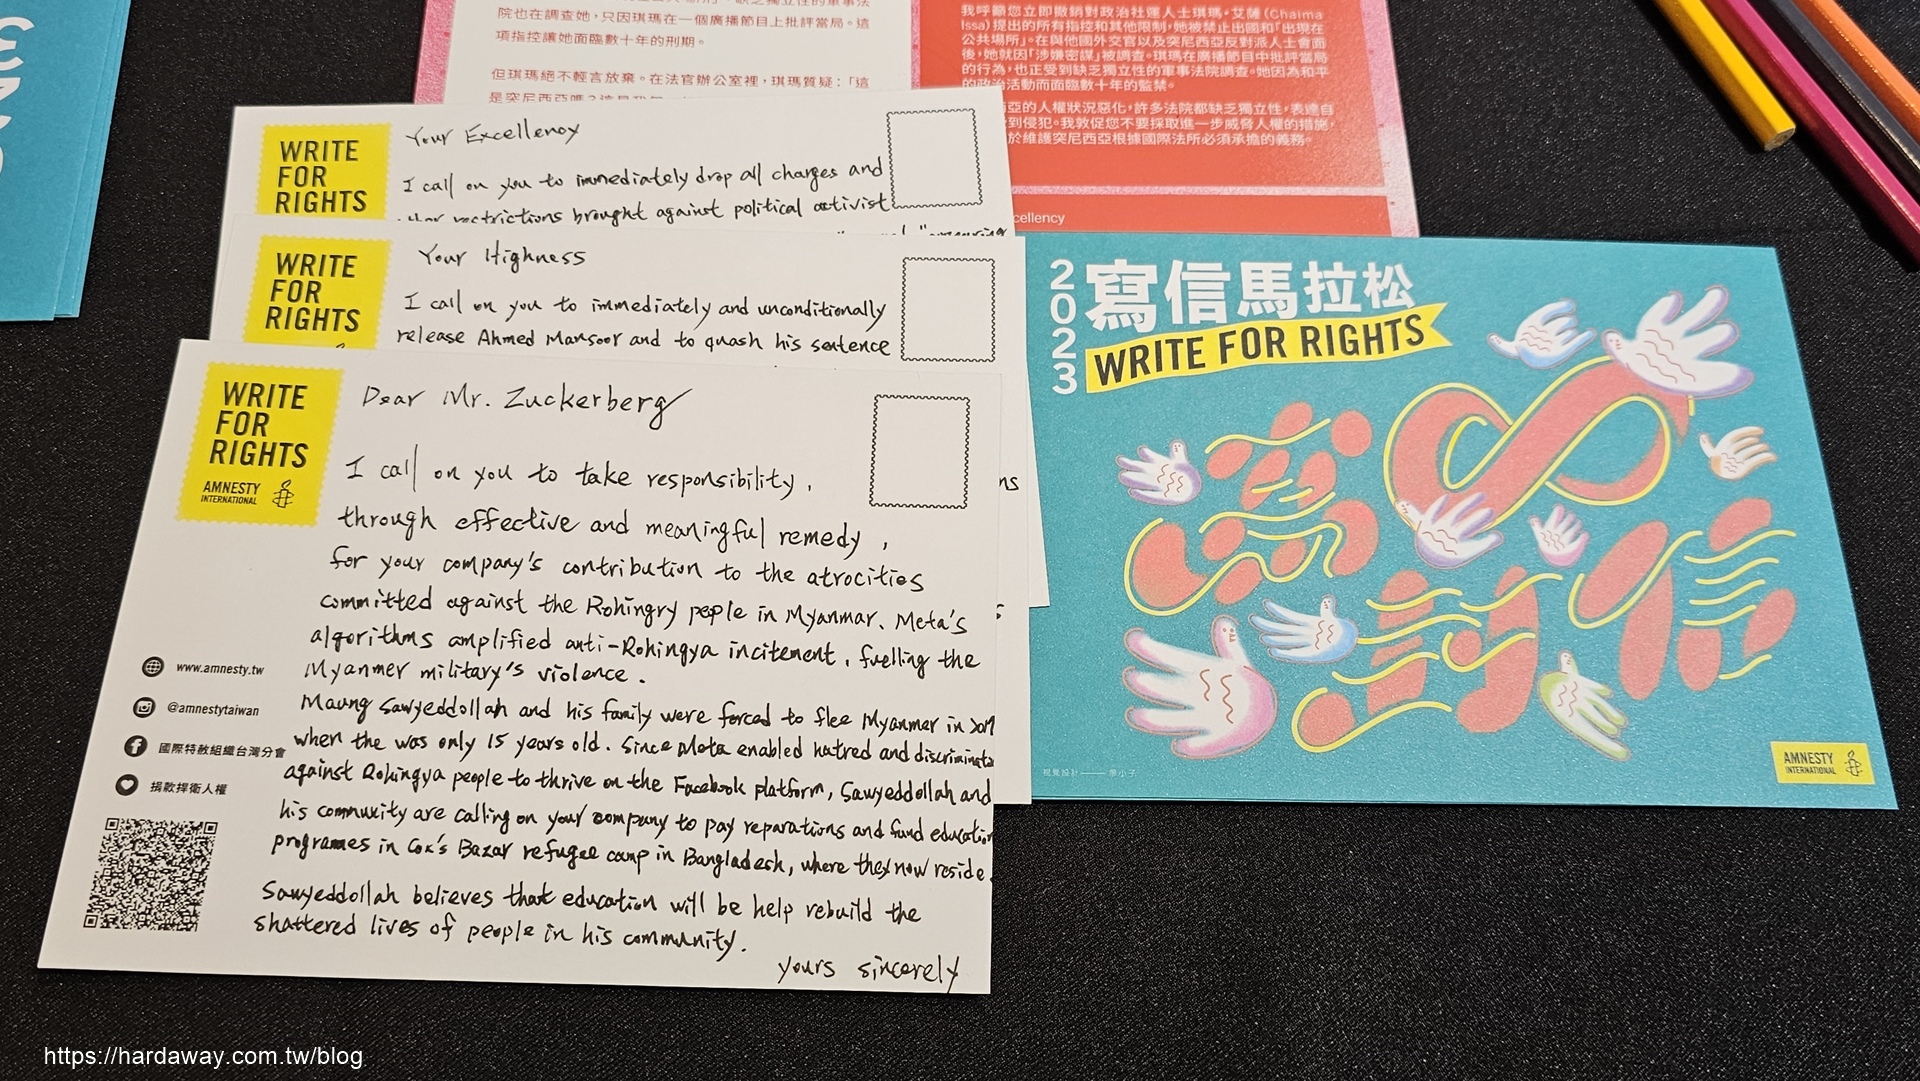 院也在調查她，只因琪瑪在一個廣播節目上批評當局。這
項指控讓她面臨數十年的刑期。
但琪瑪絕不輕言放棄。在法官辦公室裡，琪瑪質疑：「這
是突尼西亞嗎？這是我
我呼籲您立即撤銷對政治社運人士琪瑪・艾薩（Chaima
Issa）提出的所有指控和其他限制，她被禁止出國和「出現在
公共場所」。在與他國外交官以及突尼西亞反對派人士會面
後，她就因「涉嫌密謀」被調查。琪瑪在廣播節目中批評當局
的行為，也正受到缺乏獨立性的軍事法院調查。她因為和平
的政治活動而面臨數十年的監禁。
亞的人權狀況惡化，許多法院都缺乏獨立性，表達自
到侵犯。我敦促您不要採取進一步威脅人權的措施，
於維護突尼西亞根據國際法所必須承擔的義務。
cellency
WRITE
FOR
RIGHTS
Your Excellency
I call on you to immediately drop all charges and
restrictions brought against political activist
WRITE
FOR
RIGHTS
Your Highness
I call on you to immediately and unconditionally
release Ahmed Mansoor and to quash his sentence
ns
WRITE
FOR
RIGHTS
AMNESTY
INTERNATIONAL
Dear Mr. Zuckerberg
I call on you to take responsibility,
through effective and meaningful remedy,
for your company's contribution to the atrocities
committed against the Rohingry people in Myanmar. Meta's
algorithms amplified anti-Rohingya incitement, fuelling the
Myanmer military's violence.
Maung Sawyeddollah and his family were forced to flee Myanmer in 2017
when the was only 15 years old. Since Meta enabled hatred and discriminatio
against Rohingya people to thrive on the Facebook platform, Sawyeddollah and
his community are calling on your company to pay reparations and fund education
programes in Cox's Bazar refugee camp in Bangladesh, where they now reside.
Sawyeddollah believes that education will be help rebuild the
shattered lives of people in his community.
yours sincerely
www.amnesty.tw
@amnestytaiwan
國際特赦組織台灣分會
捐款捍衛人權
2023
寫信馬拉松
WRITE FOR RIGHTS
寫信
視覺設計——廖小子
AMNESTY
INTERNATIONAL
https://hardaway.com.tw/blog